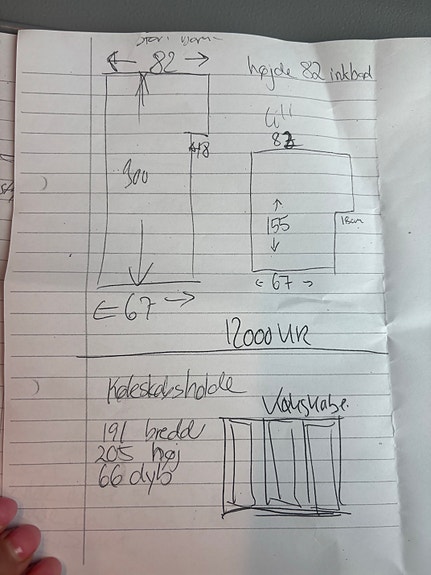 82
højde 82 inkbord
300
82
155
18cm
67
67
12000 kr
Køleskabsholde
Køleskabe.
191 bredd
205 høj
66 dyb